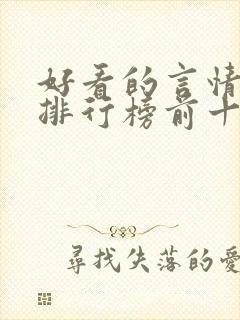 好看的言情
排行榜前十
尋找失落的愛